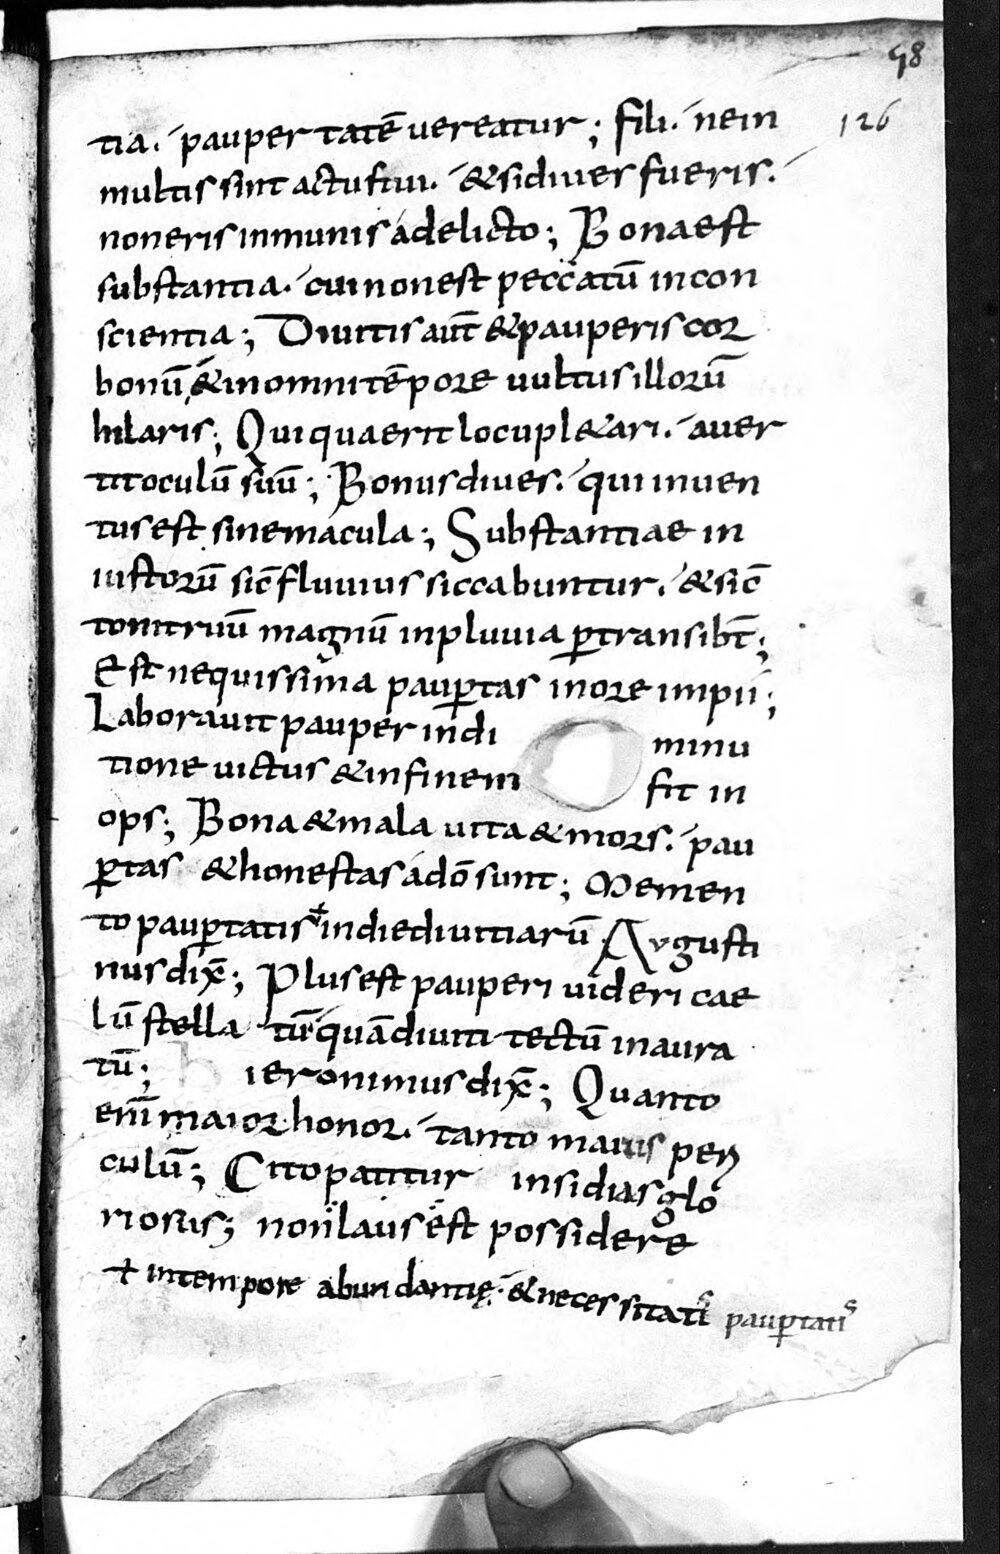 58
126
tia. pauper tatē uereatur; Fili. nein
multis sint actus tui. & si diues fueris.
non eris inmunis a delicto; Bona est
substantia. cui non est peccatū in con
scientia; Diuitis aut̄ & pauperis cor
bonū, & in omni tēpore uultus illorū
hilaris; Qui quaerit locupl&ari. auer
tit oculū suū; Bonus diues. qui inuen
tus est sine macula; Substantiae in
iustorū sic̄ fluuius siccabuntur. & sic̄
tonitruū magnū in pluuia ꝑtransibt̄;
Est nequissima pauꝑtas in ore impii;
Laborauit pauper in di minu
tione uictus & in finem fit in
ops; Bona & mala uita & mors. pau
ꝑtas & honestas a dō sunt; Memen
to pauꝑtatis in die diuitiarū Agusti
nus dix̄; Plus est pauperi uideri cae
lū stella tū quā diuiti tectū inaura
tū; hieronimus dix̄; Quanto
enī maior honor. tanto maius peri
culū; Cito patitur insidias glo
riosus; non laus est possidere
in tempore abundantię. & necessitatis pauꝑtatis